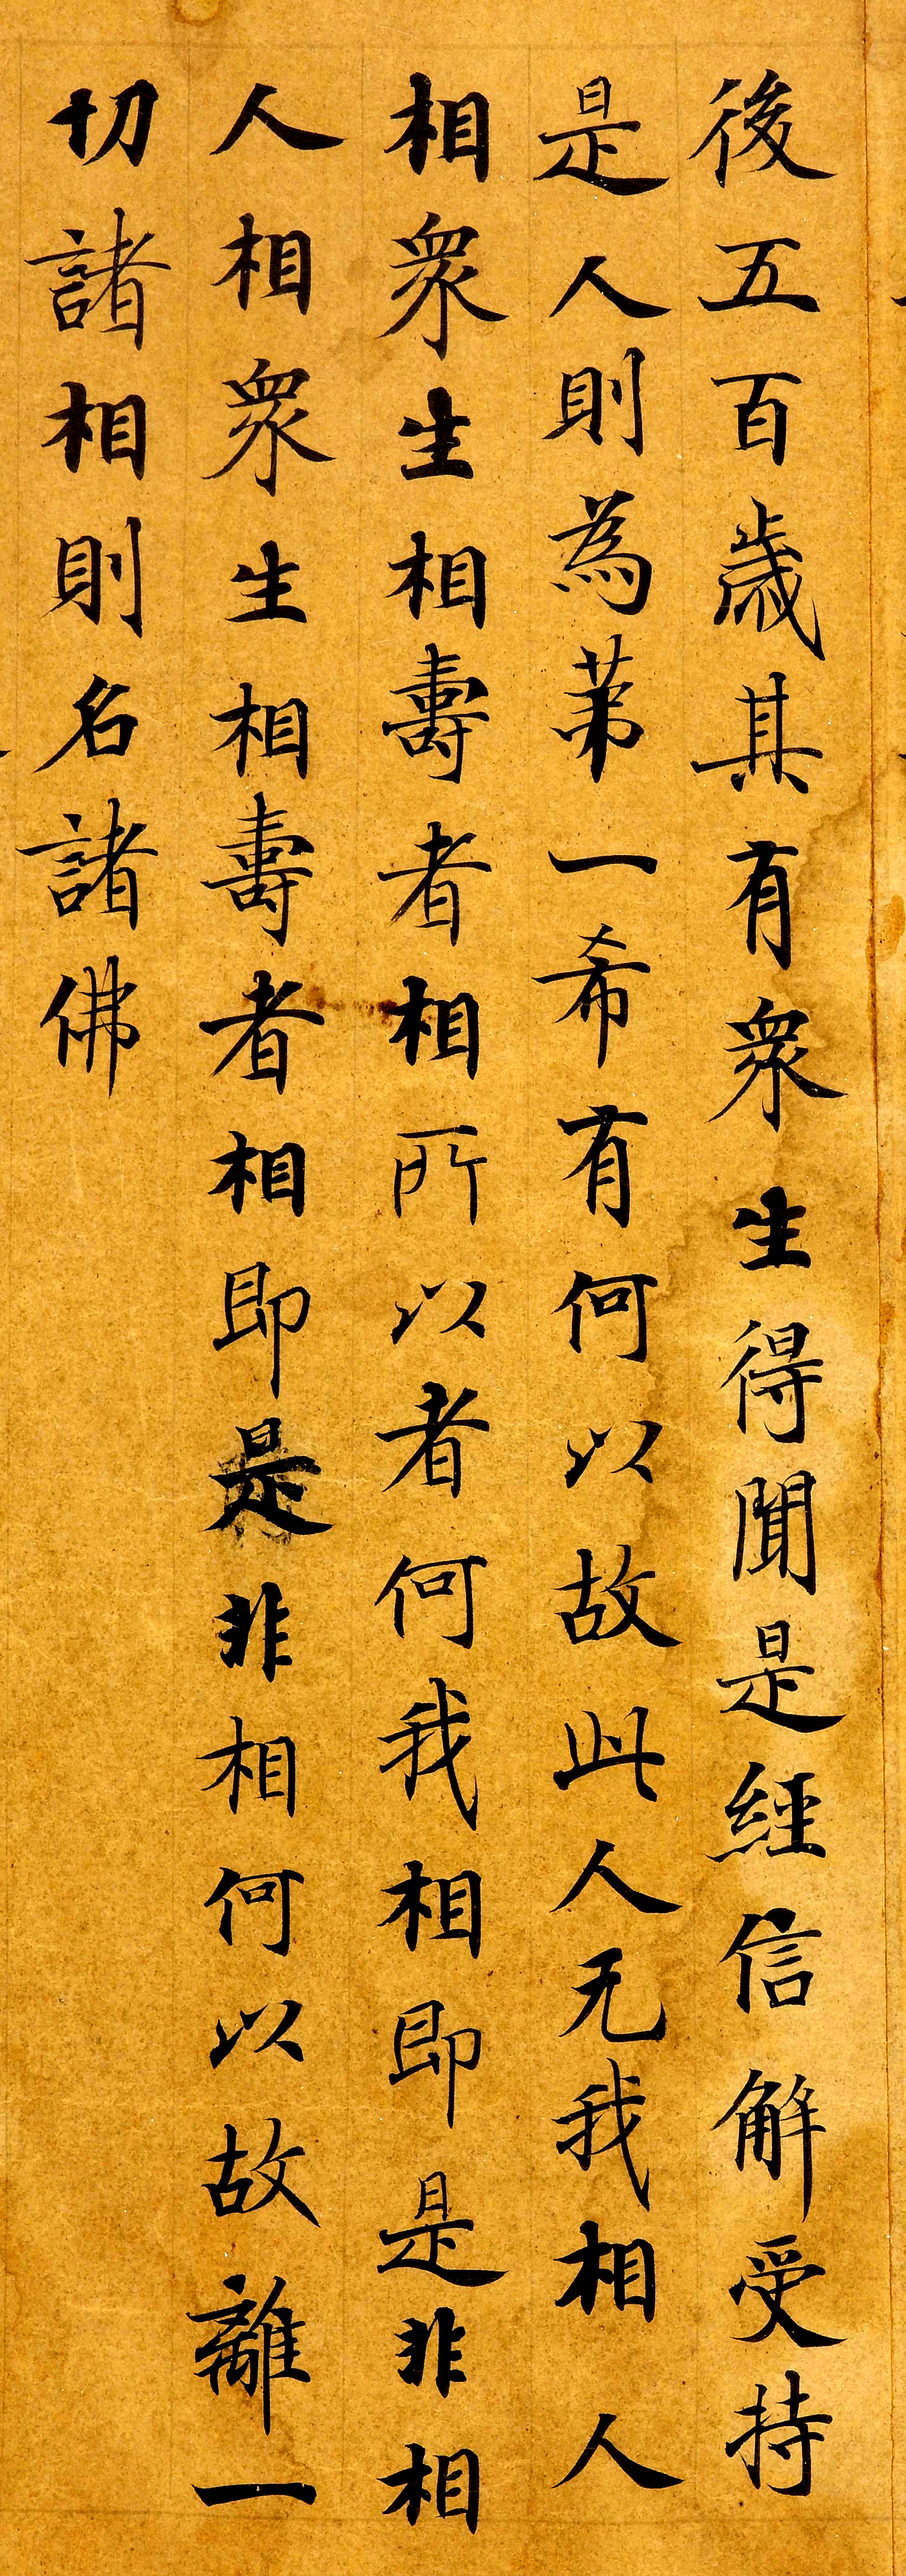 後五百歲其有衆生得聞是經信解受持
是人則為苐一希有何以故此人无我相人
相衆生相壽者相所以者何我相即是非相
人相衆生相壽者相即是非相何以故離一
切諸相則名諸佛